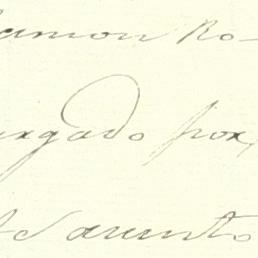 Ramon Ro-
urgado por
l asunto